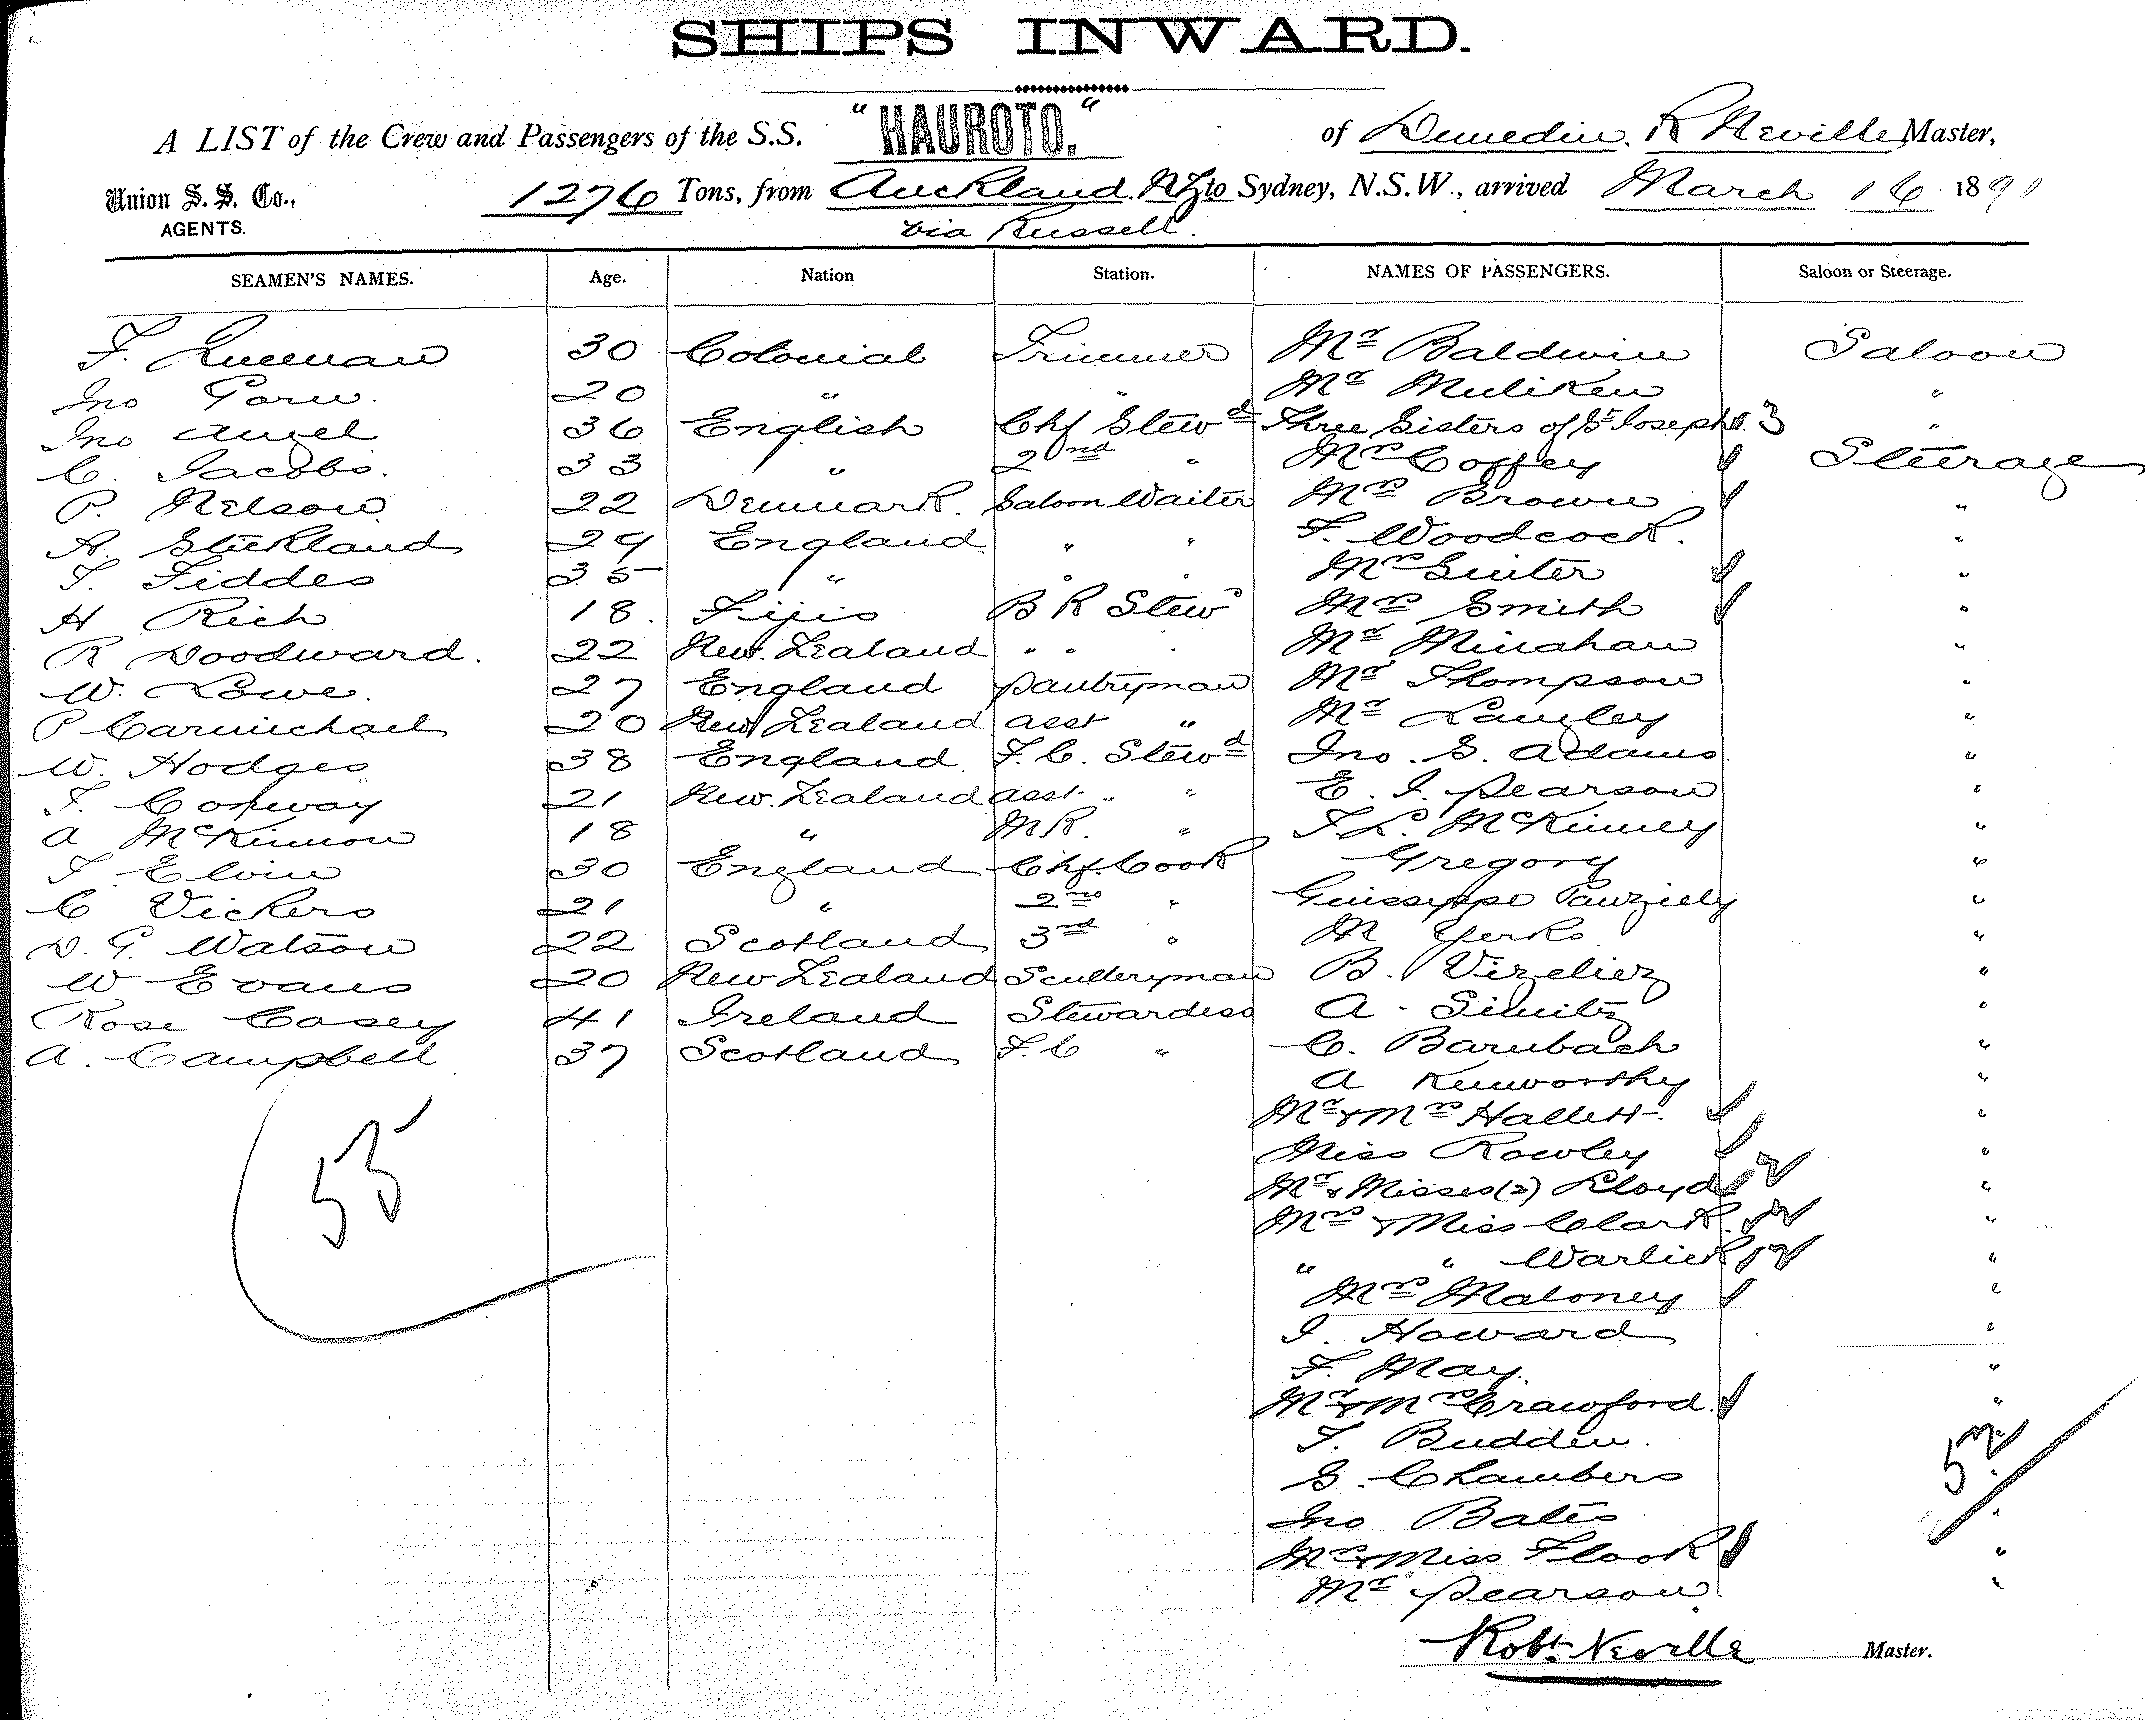 SHIPS INWARD.
A LIST of the Crew and Passengers of the S.S. "HAUROTO." of Dunedin. R Neville, Master,
Union S. S. Co., AGENTS. 1276 Tons, from Auckland NZ to Sydney, N.S.W., arrived March 16 1891
via Russell.
SEAMEN'S NAMES. Age. Nation Station. NAMES OF PASSENGERS. Saloon or Steerage.
F. 30 Colonial Trimmer Mr Baldwin Saloon
Jno 20 " " Mr Muliken "
Jno Angel 36 English Chf Stewd Three Sisters of St Joseph 3 "
C. Jacobs. 33 " 2nd " Mrs Coffey Steerage
P. Nelson 22 Denmark. Saloon Waiter Mrs Brown "
A. Stickland 29 England " " F. Woodcock. "
T. Fiddes 35 " " " Mrs "
H Rich 18. Fijis B R Stewd Mrs Smith "
R Woodward. 22 New Zealand " " " Mr Minahan "
W. Lowe. 27 England Pantryman Mr Thompson "
P Carmichael 20 New Zealand asst " Mr Langley "
W. Hodges 38 England F. C. Stewd Jno. S. Adams "
T. Conway 21 New Zealand asst. " " E. J. Pearson "
A McKinnon 18 " M R. " T. L. McKinney "
T Elvin 30 England Chf. Cook Gregory "
C Vickers 21 " 2nd " Guisseppe "
D. G. Watson 22 Scotland 3rd " M Yerks "
W Evans 20 New Zealand Sculleryman B. "
Rose Casey 41 Ireland Stewardess A. "
A. Campbell 37 Scotland F. C " C. Barnbach "
A Kenworthy "
Mr & Mrs Hallett "
Miss Rowley "
Mr & Misses (2) Lloyd 2 "
Mrs & Miss Clark. 2 "
" " Warlick 2 "
Mrs Maloney "
J. Howard "
F. May. "
Mr & Mrs Crawford. "
T. Budden. "
S. Chambers
Jno Bates "
Mr & Miss Flook "
Mr Pearson "
55
52
Robt. Neville Master.